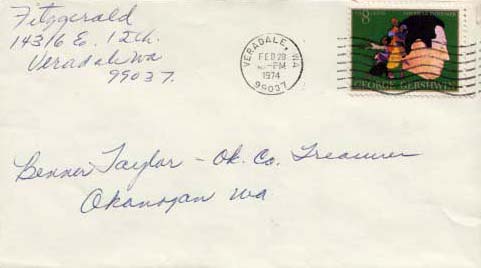 Fitzgerald
14316 E. 12th.
Veradale Wa
99037.
VERADALE, WA
FEB 20
PM
1974
99037
8
GEORGE GERSHWIN
Benner Taylor - Ok. Co. Treasurer
Okanogan Wa